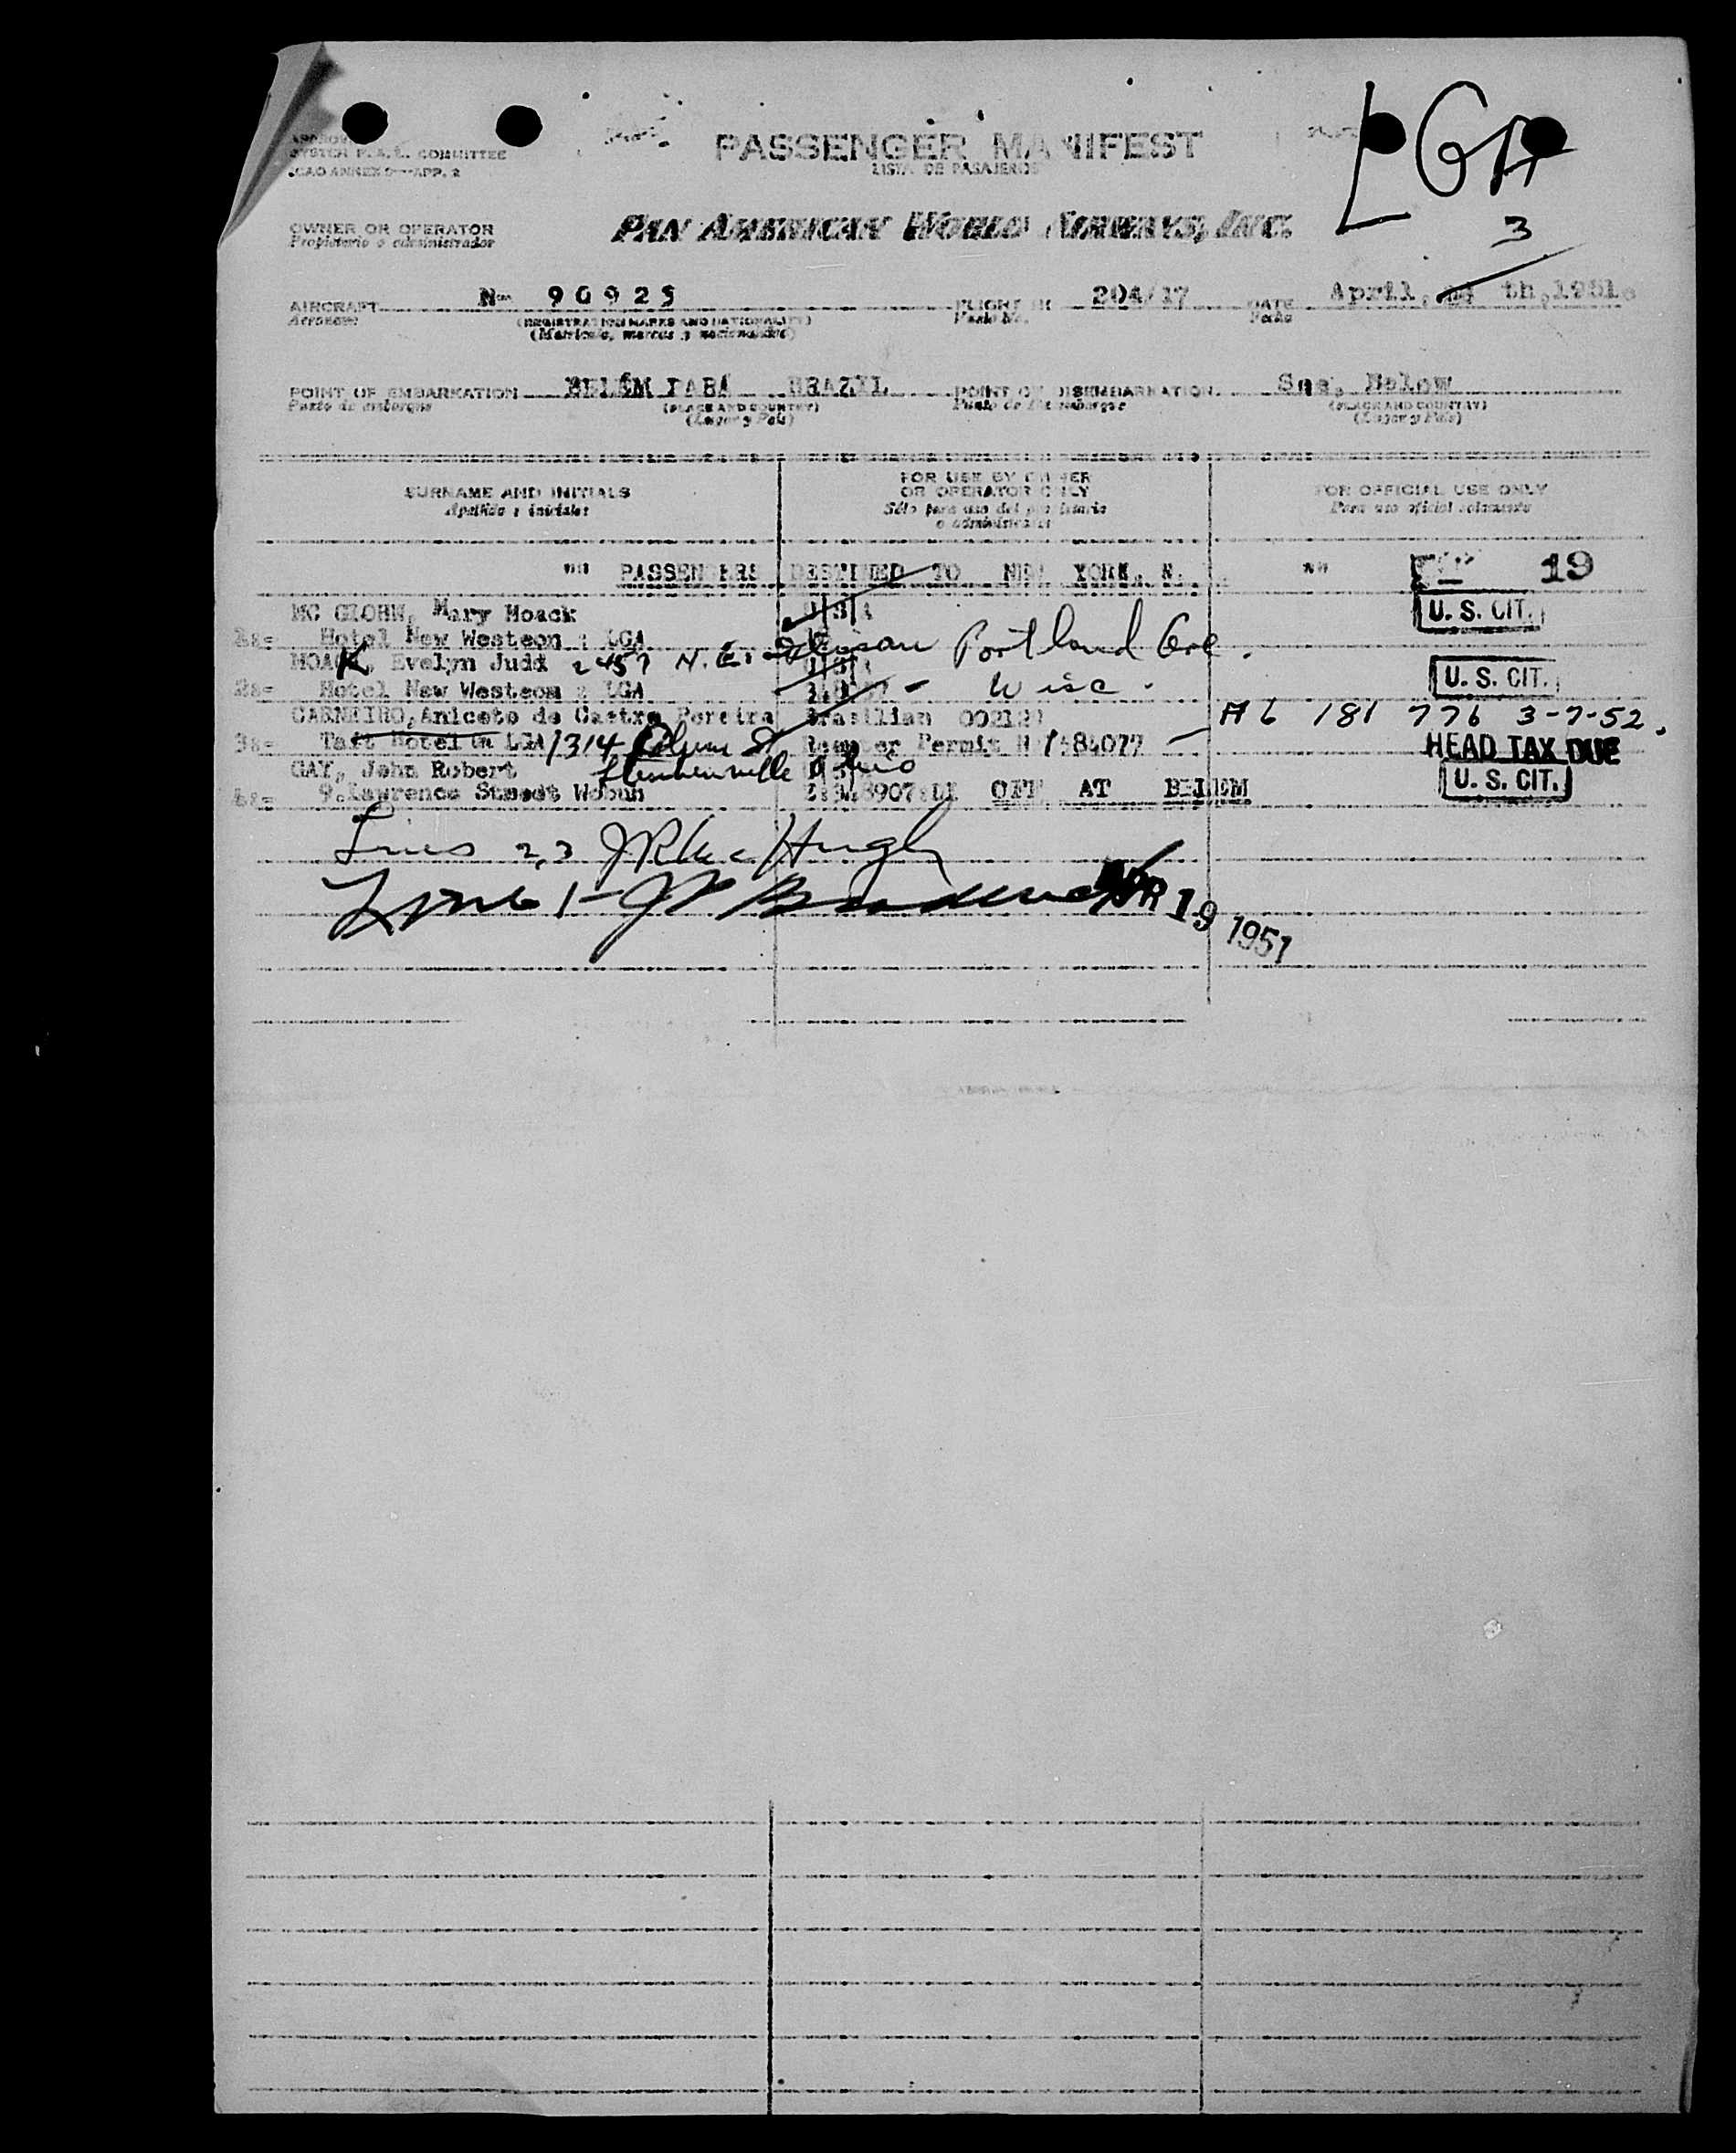 SYSTEM F.A.L. COMMITTEE
ICAO ANNEX 9—APP. 2
PASSENGER MANIFEST
LISTA DE PASAJEROS
LGA
3
OWNER OR OPERATOR
Propietario o administrador
PAN AMERICAN WORLD AIRWAYS, INC.
AIRCRAFT N- 90925 FLIGHT 204/17 DATE April, th, 1951.
Aeronave (REGISTRATION MARKS AND NATIONALITY) Vuelo No. Fecha
(Matricula, marcas y nacionalidad)
POINT OF EMBARKATION BELÉM PARÁ BRAZIL POINT OF DISEMBARKATION See, Below
Punto de embarque (PLACE AND COUNTRY) Punto de Desembarque (PLACE AND COUNTRY)
(Lugar y País) (Lugar y País)
SURNAME AND INITIALS
Apellido e iniciales
FOR USE BY OWNER
OR OPERATOR ONLY
Sólo para uso del propietario
o administrador
FOR OFFICIAL USE ONLY
Para uso oficial solamente
PASSENGERS DESTINED TO NEW YORK, N. 19
Mary Hoack U. S. CIT.
Hotel New Westeon : LGA
HOACK, Evelyn Judd 2457 N. E. Portland Ore. U. S. CIT.
Hotel New Westeon : LGA Wisc.
CARNEIRO, Aniceto de Castro Pereira Brasilian A6 181 776 3-7-52.
3:- Taft Hotel LGA 1314 Permit HEAD TAX DUE
GAY, John Robert Steubenville Ohio U. S. CIT.
9. Lawrence Street OFF AT BELEM
Lines 2,3
Line 1-
APR 19 1951